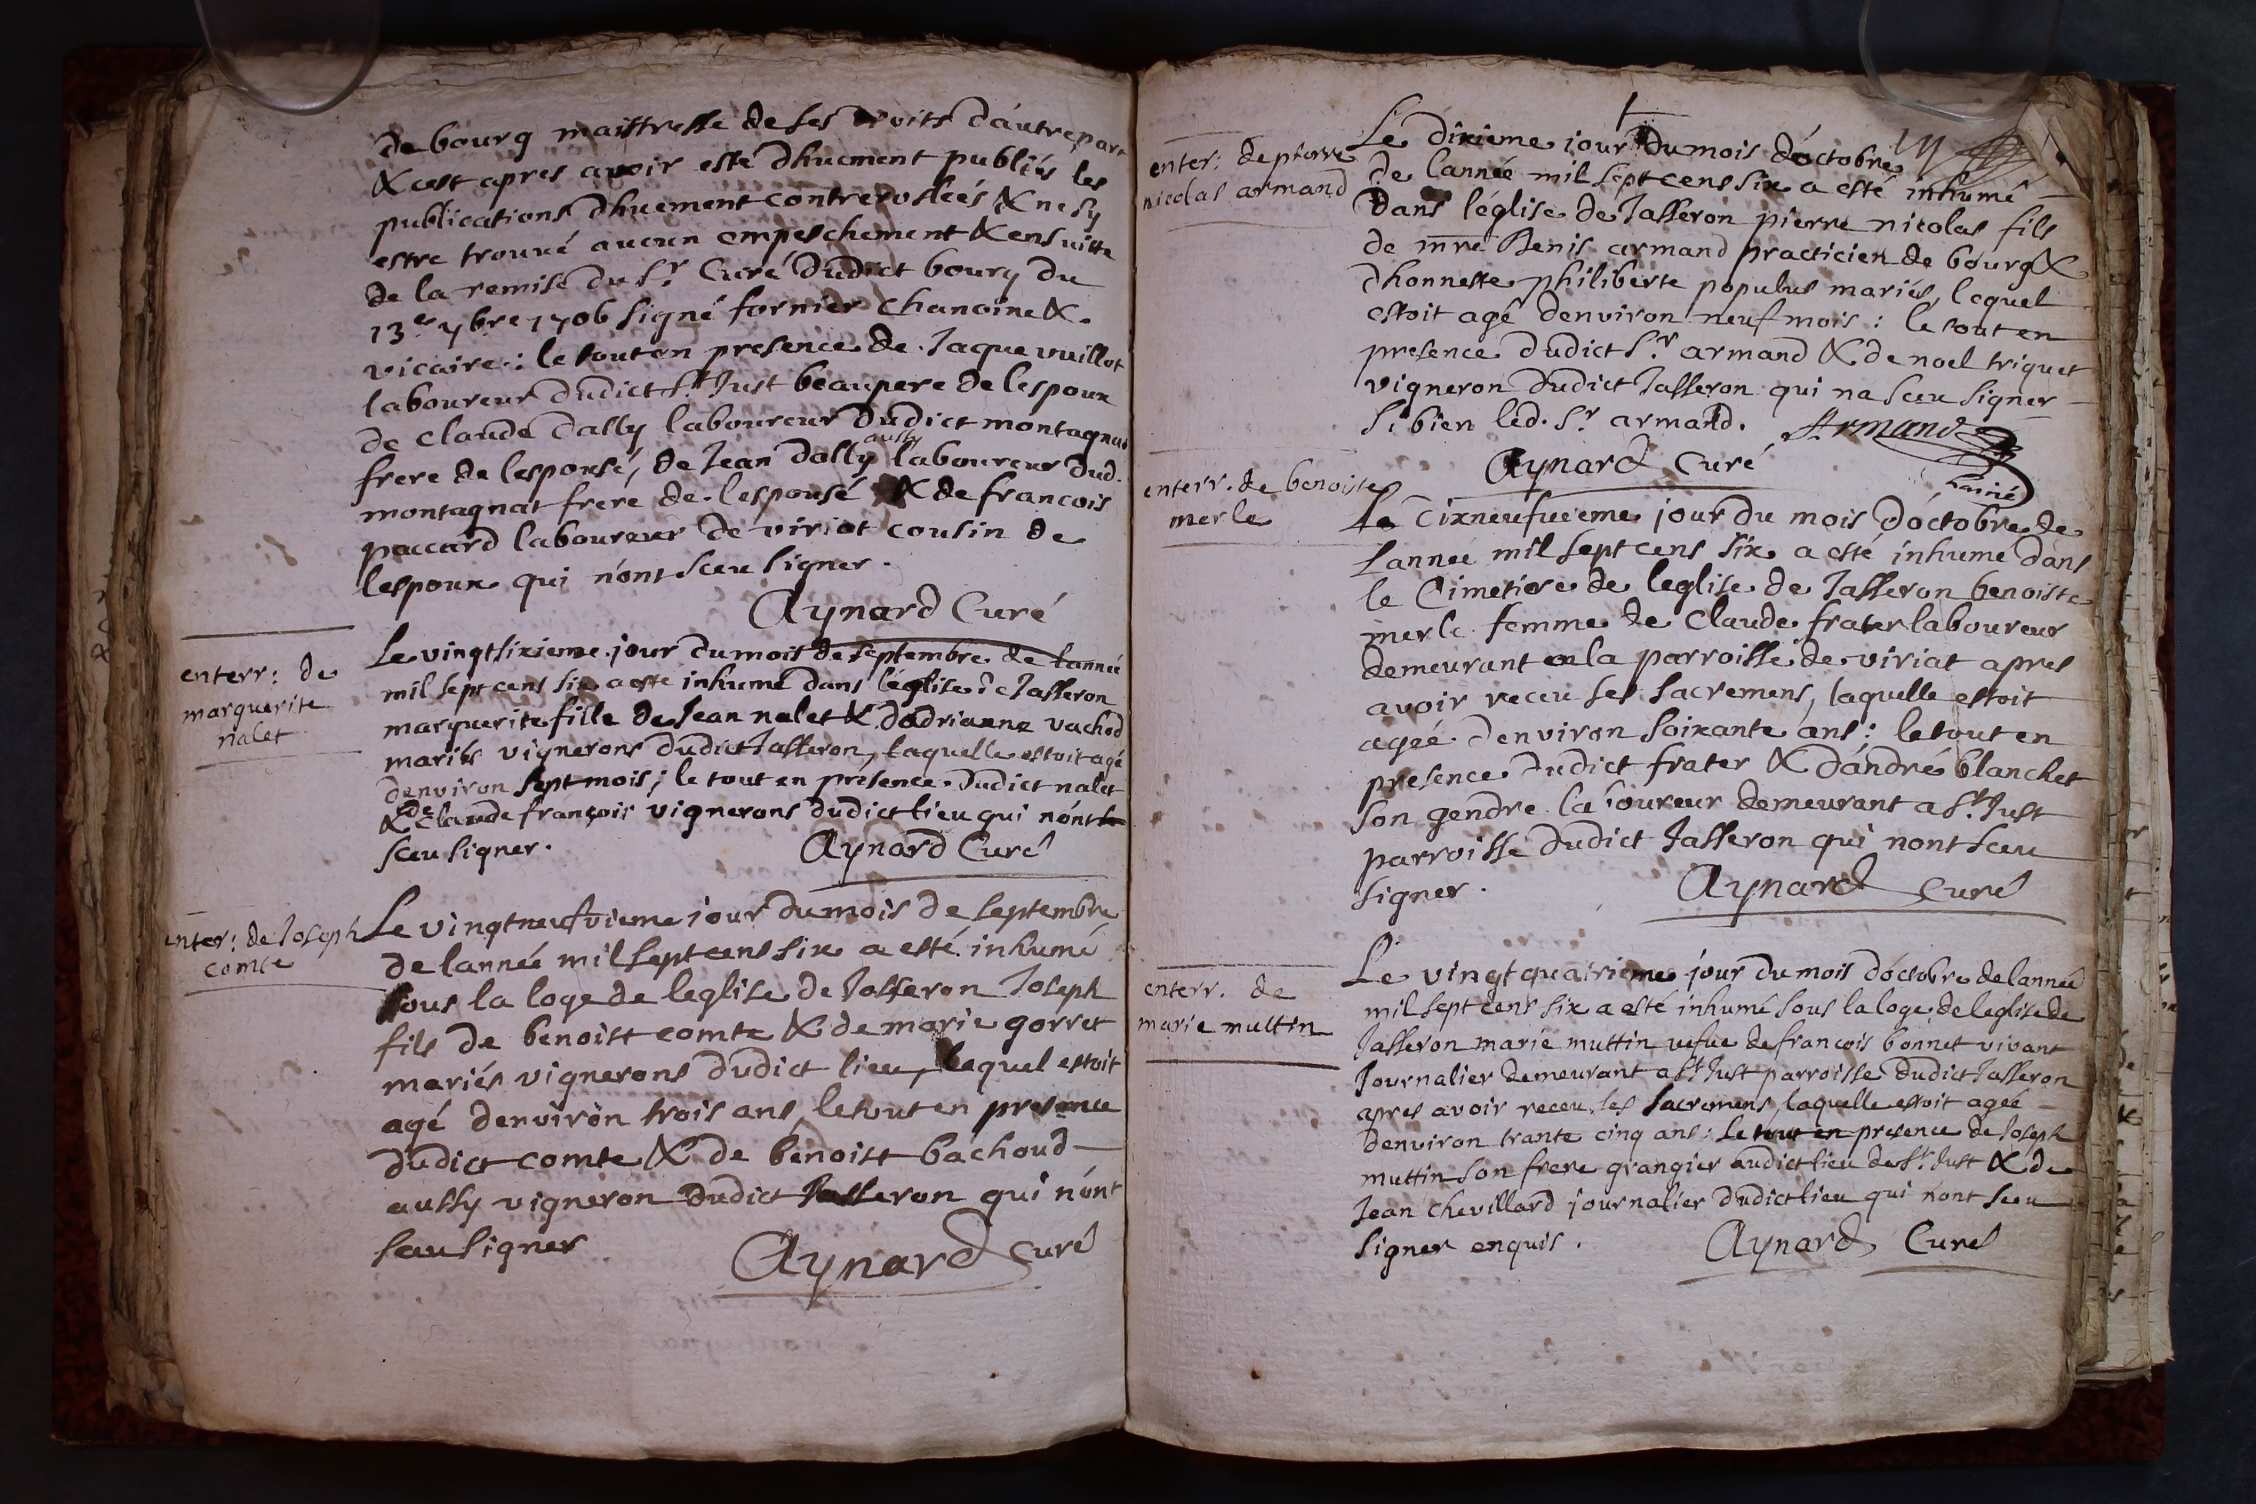 de bourg maistresse de ses droits d'autrepart
& cest apres avoir esté dhuement publiés les
publications dhuement controrosléés & ne sy
estre trouué aucun empeschement & ensuitte
de la remise du Sr. Curé dudict bourg du
13e 7bre 1706 signé fornier chanoine &
vicaire : le tout en presence de Jaque vuillot
laboureur dudict St Just beaupere de lespoux
de claude dally laboureur dudict montagnat
frere de lesponsé, de Jean dally aussy laboureur dud.
montagnat frere de lespousé & de francois
paccard laboureur de viriat cousin de
lespoux qui n'ont sceu signer.
Aynard Curé
enterr: de
marguerite
nalet
Le vingtsixieme jour du mois de septembre de lanneé
mil sept cens six a esté inhumé dans l'église de Jasseron
marguerite fille de Jean nalet & dadrianne vachod
mariés vignerons dudict Jasseron, laquelle estoit agé
denviron sept mois ; le tout en présence dudict nalet
& de claude françois vignerons dudict lieu qui n'ont
sceu signer.
Aynard Curé
enter: de Joseph
comte
Le vingtneufvieme jour du mois de septembre
de lannéé mil sept cens six a esté inhumé
sous la loge de leglise de Jasseron Joseph
fils de benoist comte & de marie gorret
mariés vignerons dudict lieu, lequel estoit
agé denviron trois ans, le tout en presence
dudict comte & de benoist bachoud
aussy vigneron dudict Jasseron qui n'ont
sceu signer
Aynard Curé
enter: de pierre
nicolas armand
Le dixieme jour du mois d'octobre
de lannéé mil sept cens six a esté inhumé
dans l'église de Jasseron pierre nicolas fils
de mre Denis armand practicien de bourg &
dhonneste philiberte populus mariés, lequel
estoit agé denviron neuf mois : le tout en
presence dudict Sr. armand & de noel triquet
vigneron dudict Jasseron qui na sceu signer
si bien led. Sr armand. Armand
Aynard Curé
enterr. de benoiste
merle
Le dixneufvieme jour du mois d'octobre de
Lanneé mil sept cens six a esté inhumé dans
le Cimetiere de leglise de Jasseron benoiste
merle femme de Claude frater laboureur
demeurant en la parroisse de viriat apres
avoir receu ses sacremens, laquelle estoit
agéé denviron soixante ans : le tout en
presence dudict frater & d'andré blanchet
son gendre laboureur demeurant a St. Just
parroisse dudict Jasseron qui nont sceu
signer.
Aynard Curé
enterr. de
marie muttin
Le vingtquatrieme jour du mois d'octobre de lanneé
mil sept cens six a esté inhumé sous la loge de leglise de
Jasseron marie muttin vefue de francois bonnet vivant
Journalier demeurant a St Just parroisse dudict Jasseron
apres avoir receu les sacremens, laquelle estoit ageé
denviron trante cinq ans : le tout en presence de Joseph
muttin son frere grangier audict lieu de St. Just & de
Jean chevillard journalier dudict lieu qui n'ont sceu
signer enquis.
Aynard Curé